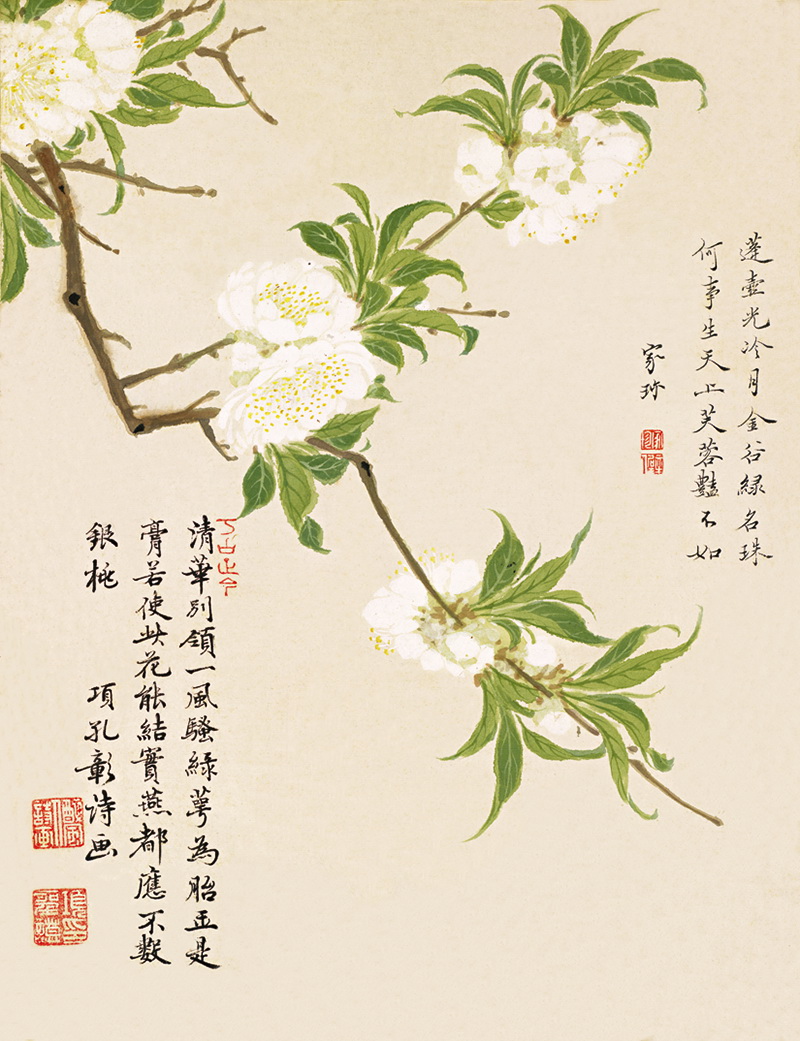 蓬壺光冷月金谷緑名珠
何事生天上芙蓉豔不如
家珍
清華別領一風騷緑萼為胎玉是
膏若使此花能結實燕都應不數
銀桃 項孔彰詩画